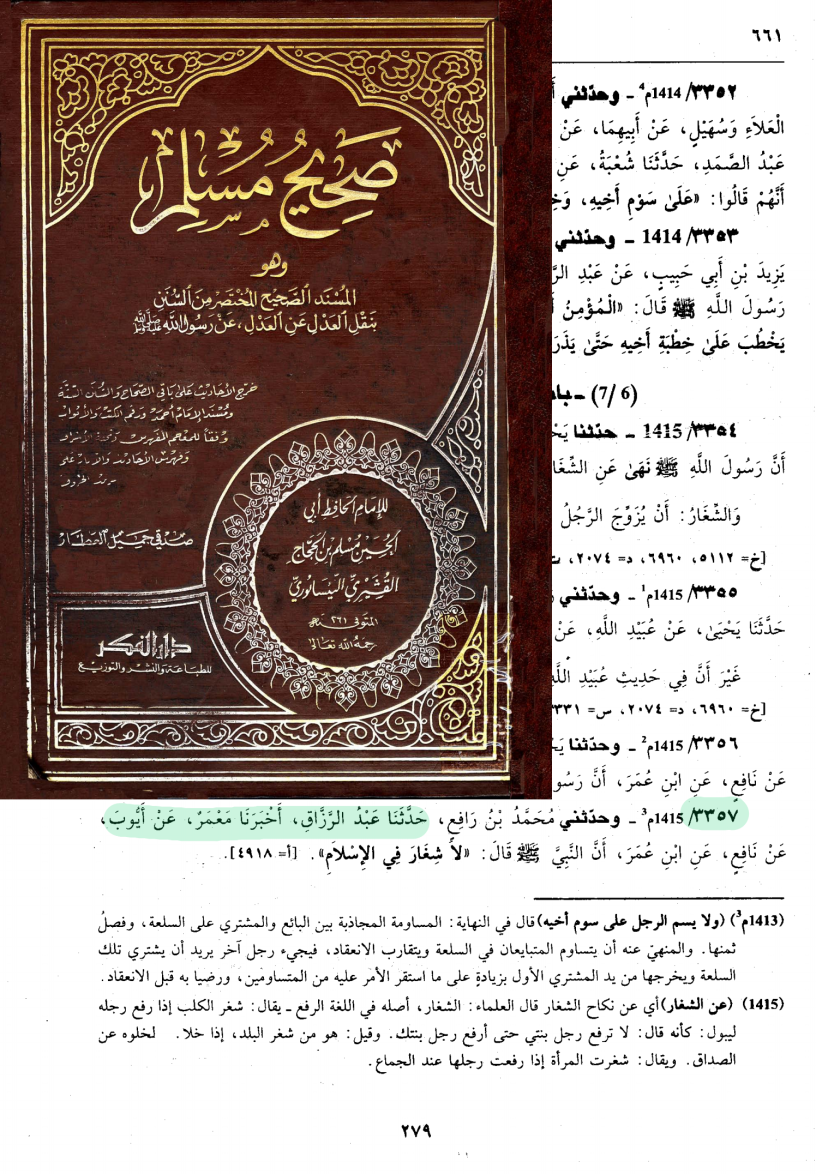 صَحِيحُ مُسْلِم
وهو
المُسْنَد الصَّحِيح المُخْتَصَر مِنَ السُّنَنِ
بنَقْلِ العَدْلِ عَنِ العَدْل، عَنْ رَسُولِ الله ﷺ
خرج الأحاديث على باقي الصحاح والسنن الستة
ومسند الإمام أحمد ورقم الكتب والأبواب
وفقاً للمعجم المفهرس وتحفة الأشراف
صدقي جميل العطار
للإمام الحافظ أبي
الحسين مسلم بن الحجاج
القشيري النيسابوري
المتوفى ٢٦١ هـ
رحمه الله تعالى
دار الفكر
للطباعة والنشر والتوزيع
٦٦١
٣٣٥٢/ 1414م⁴ ـ وحدّثني
الْعَلَاءِ وَسُهَيْلٍ، عَنْ أَبِيهِمَا، عَنْ
عَبْدُ الصَّمَدِ، حَدَّثَنَا شُعْبَةُ، عَنِ
أَنَّهُمْ قَالُوا: «عَلَىٰ سَوْمِ أَخِيهِ،
٣٣٥٣/ 1414 ـ وحدّثني
يَزِيدَ بْنِ أَبِي حَبِيبٍ، عَنْ عَبْدِ
رَسُولَ اللَّهِ ﷺ قَالَ: «الْمُؤْمِنُ
يَخْطُبَ عَلَىٰ خِطْبَةِ أَخِيهِ حَتَّىٰ يَذَرَ
(6 /7) ـ
٣٣٥٤/ 1415 ـ حدّثنا
أَنَّ رَسُولَ اللَّهِ ﷺ نَهَىٰ عَنِ الشِّغَارِ
وَالشِّغَارُ: أَنْ يُزَوِّجَ الرَّجُلُ
[خ= ٥١١٢، ٦٩٦٠، د= ٢٠٧٤،
٣٣٥٥/ 1415م¹ ـ وحدّثني
حَدَّثَنَا يَحْيَىٰ، عَنْ عُبَيْدِ اللَّهِ، عَنْ
غَيْرَ أَنَّ فِي حَدِيثِ عُبَيْدِ اللَّهِ
[خ= ٦٩٦٠، د= ٢٠٧٤، س=
٣٣٥٦/ 1415م² ـ وحدّثنا
عَنْ نَافِعٍ، عَنِ ابْنِ عُمَرَ، أَنَّ
٣٣٥٧/ 1415م³ ـ وحدّثني مُحَمَّدُ بْنُ رَافِعٍ، حَدَّثَنَا عَبْدُ الرَّزَّاقِ، أَخْبَرَنَا مَعْمَرٌ، عَنْ أَيُّوبَ،
عَنْ نَافِعٍ، عَنِ ابْنِ عُمَرَ، أَنَّ النَّبِيَّ ﷺ قَالَ: «لاَ شِغَارَ فِي الإِسْلاَمِ». [أ= ٤٩١٨].
(1413م³) (ولا يسم الرجل على سوم أخيه) قال في النهاية: المساومة المجاذبة بين البائع والمشتري على السلعة، وفصلُ
ثمنها. والمنهيّ عنه أن يتساوم المتبايعان في السلعة ويتقارب الانعقاد، فيجيء رجل آخر يريد أن يشتري تلك
السلعة ويخرجها من يد المشتري الأول بزيادةٍ على ما استقر الأمر عليه من المتساومَين، ورضيا به قبل الانعقاد.
(1415) (عن الشغار) أي عن نكاح الشغار قال العلماء: الشغار، أصله في اللغة الرفع ـ يقال: شغر الكلب إذا رفع رجله
ليبول: كأنه قال: لا ترفع رجل بنتي حتى أرفع رجل بنتك. وقيل: هو من شغر البلد، إذا خلا. لخلوه عن
الصداق. ويقال: شغرت المرأة إذا رفعت رجلها عند الجماع.
٢٧٩